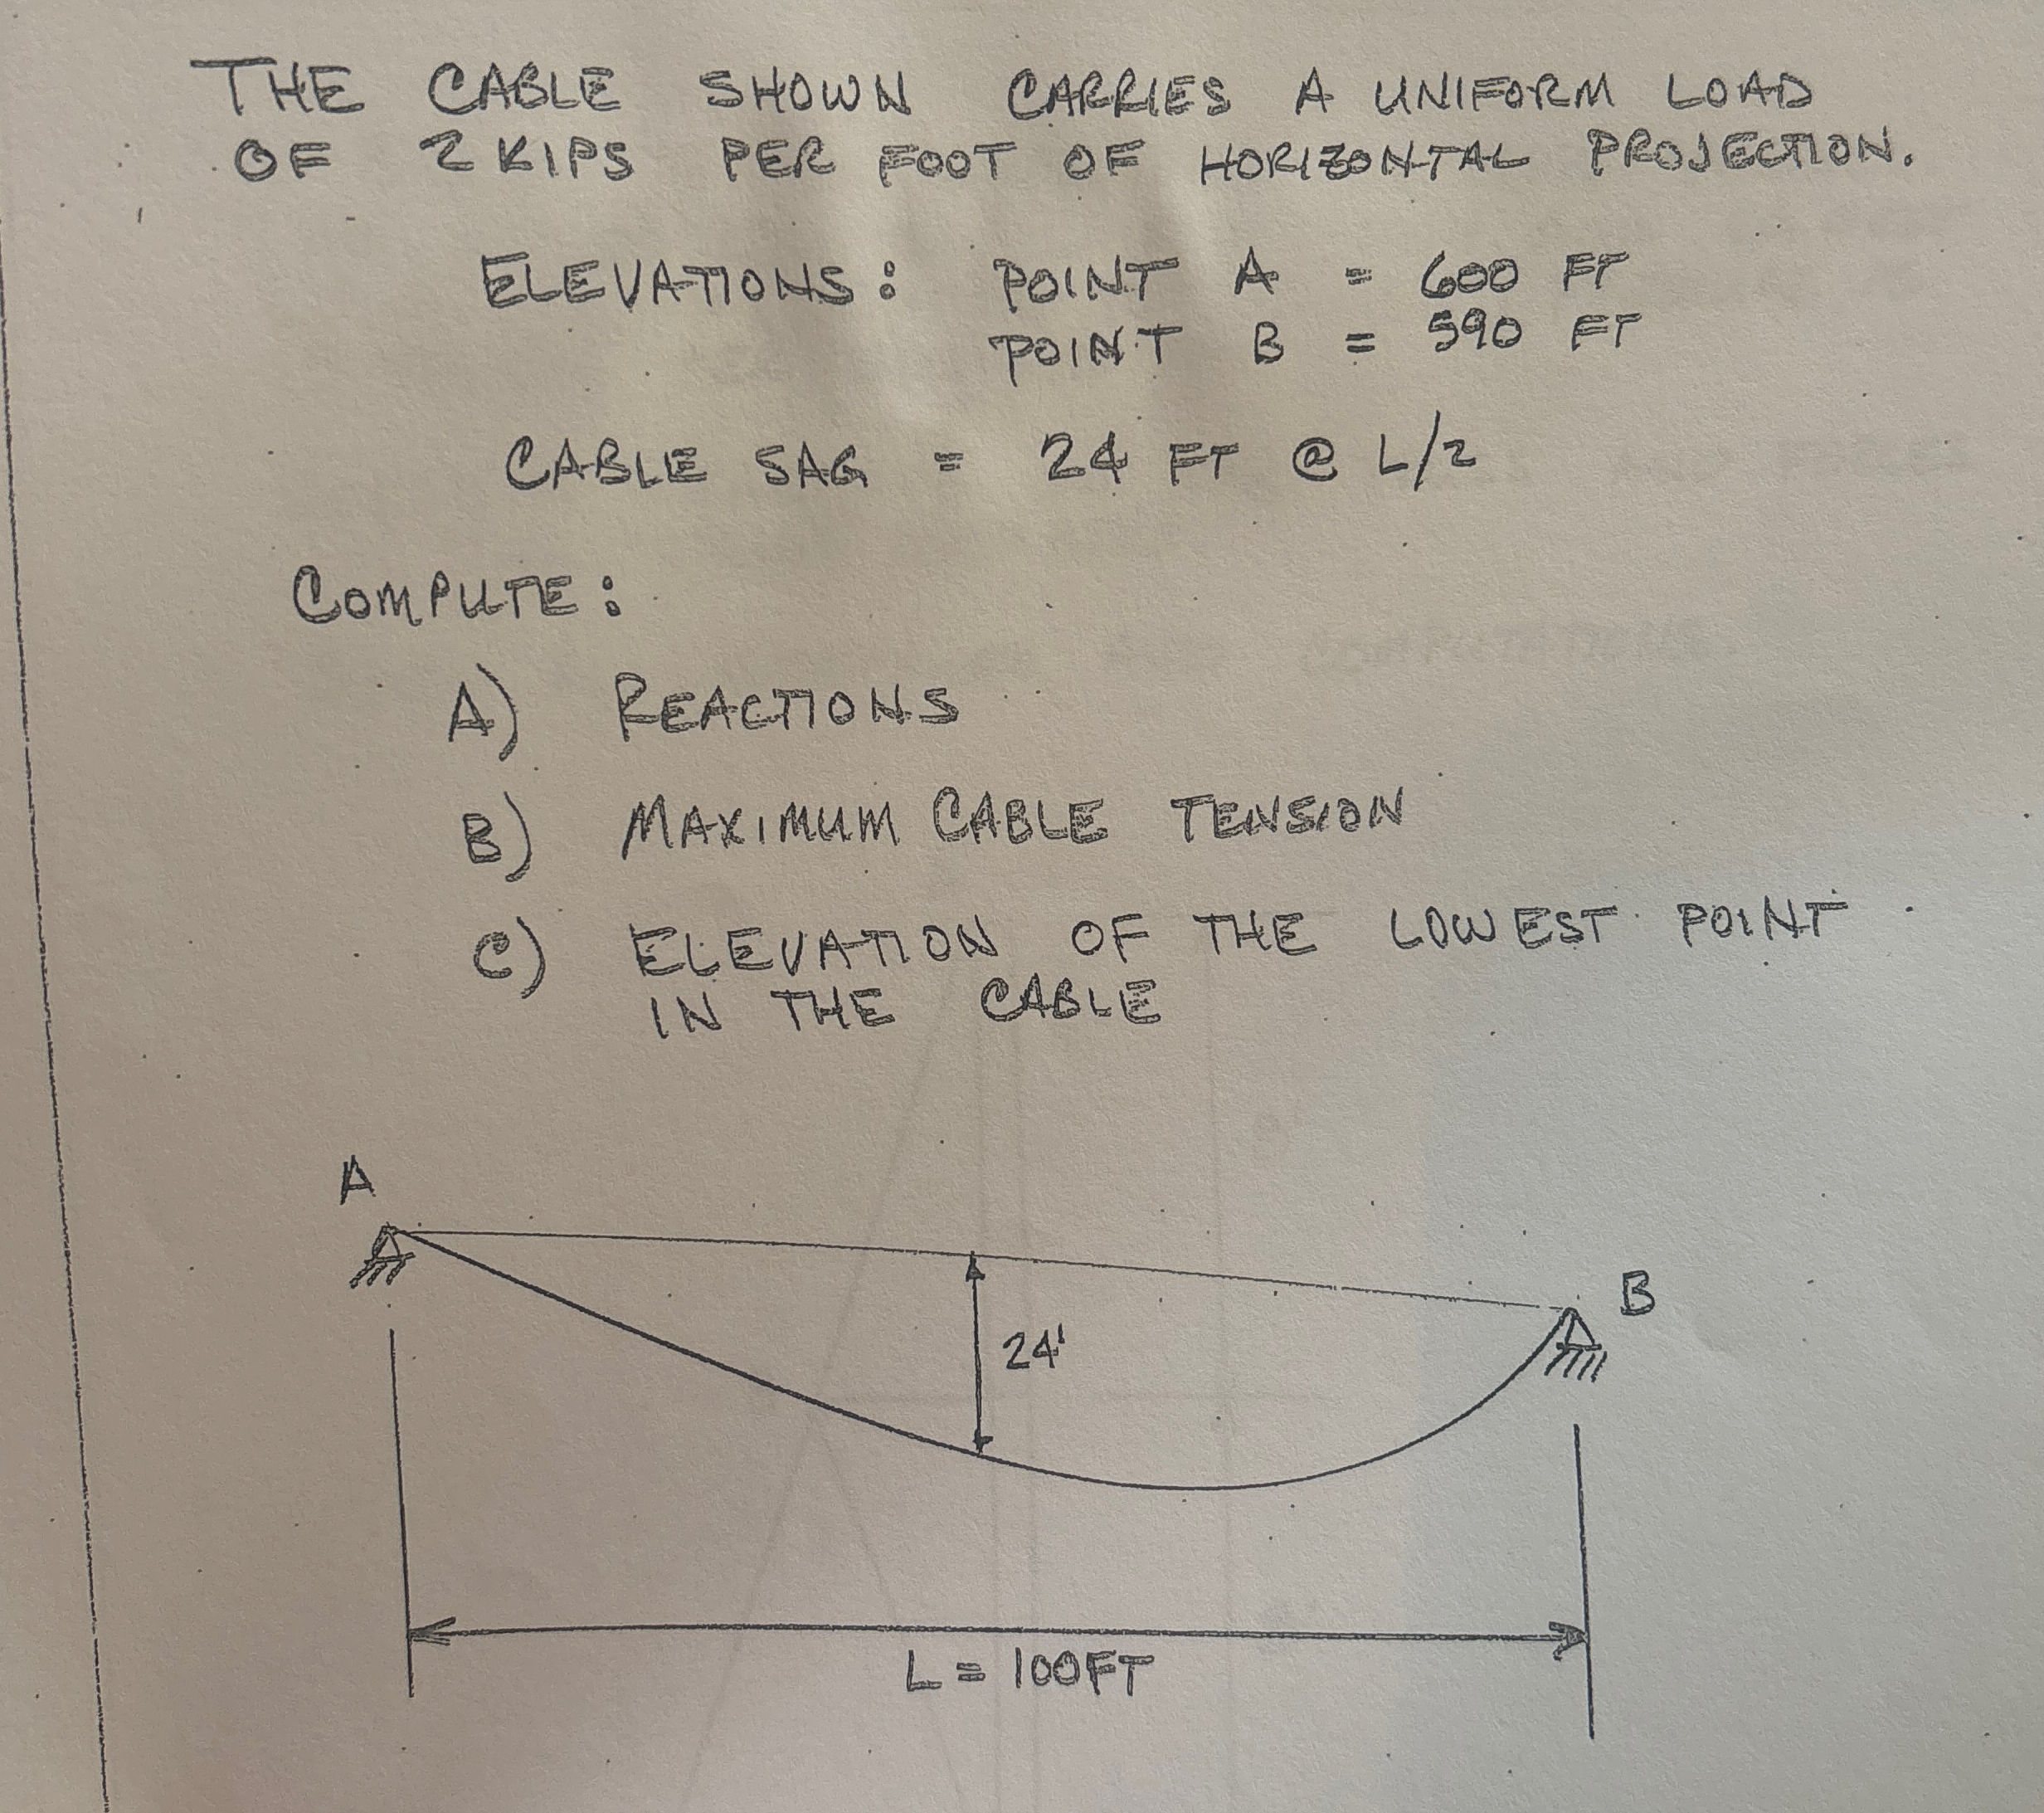 THE CABLE SHOWN CARRIES A UNIFORM LOAD
OF 2 KIPS PER FOOT OF HORIZONTAL PROJECTION.
ELEVATIONS: POINT A = 600 FT
POINT B = 590 FT
CABLE SAG = 24 FT @ L/2
COMPUTE:
A) REACTIONS
B) MAXIMUM CABLE TENSION
C) ELEVATION OF THE LOWEST POINT
IN THE CABLE
A
B
24'
L = 100FT